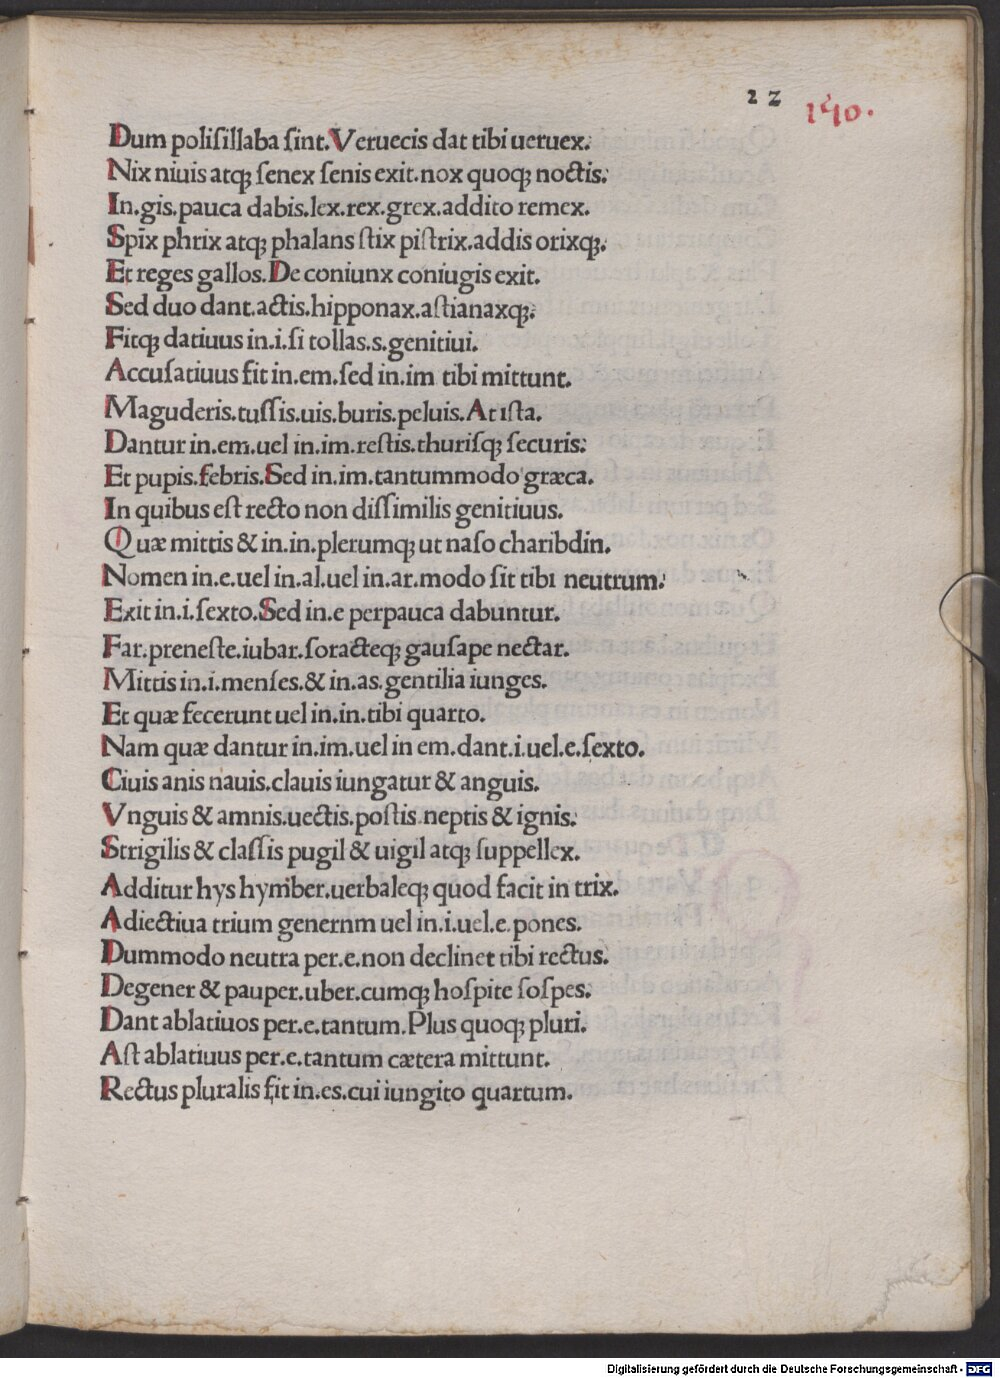 22
140.
Dum polisillaba sint. Veruecis dat tibi ueruex:
Nix niuis atqꝫ senex senis exit. nox quoqꝫ noctis:
In. gis. pauca dabis. lex. rex. grex. addito remex.
Spīx phrix atqꝫ phalans stix pistrix. addis orixqꝫ.
Et reges gallos. De coniunx coniugis exit.
Sed duo dant. actis. hipponax. astianaxqꝫ:
Fitqꝫ datiuus in. i. si tollas. s. genitiui.
Accusatiuus fit in. em. sed in. im tibi mittunt.
Maguderis. tussis. uis. buris. peluis. Ar ista.
Dantur in. em. uel in. im. restis. thurisqꝫ securis:
Et pupis. febris. Sed in. im. tantummodo græca.
In quibus est recto non dissimilis genitiuus.
Quæ mittis & in. in. plerumqꝫ ut naso charibdin.
Nomen in. e. uel in. al. uel in. ar. modo sit tibi neutrum:
Exit in. i. sexto. Sed in. e perpauca dabuntur.
Far. preneste. iubar. soracteqꝫ gausape nectar.
Mittis in. i. menses. & in. as. gentilia iunges.
Et quæ fecerunt uel in. in. tibi quarto.
Nam quæ dantur in. im. uel in em. dant. i. uel. e. sexto.
Ciuis anis nauis. clauis iungatur & anguis.
Vnguis & amnis. uectis. postis. neptis & ignis:
Strigilis & classis pugil & uigil atqꝫ suppellex.
Additur hys hymber. uerbaleqꝫ quod facit in trix.
Adiectiua trium genernm uel in. i. uel. e. pones.
Dummodo neutra per. e. non declinet tibi rectus.
Degener & pauper. uber. cumqꝫ hospite sospes.
Dant ablatiuos per. e. tantum. Plus quoqꝫ pluri.
Ast ablatiuus per. e. tantum cætera mittunt.
Rectus pluralis fit in. es. cui iungito quartum.
Digitalisierung gefördert durch die Deutsche Forschungsgemeinschaft - DFG